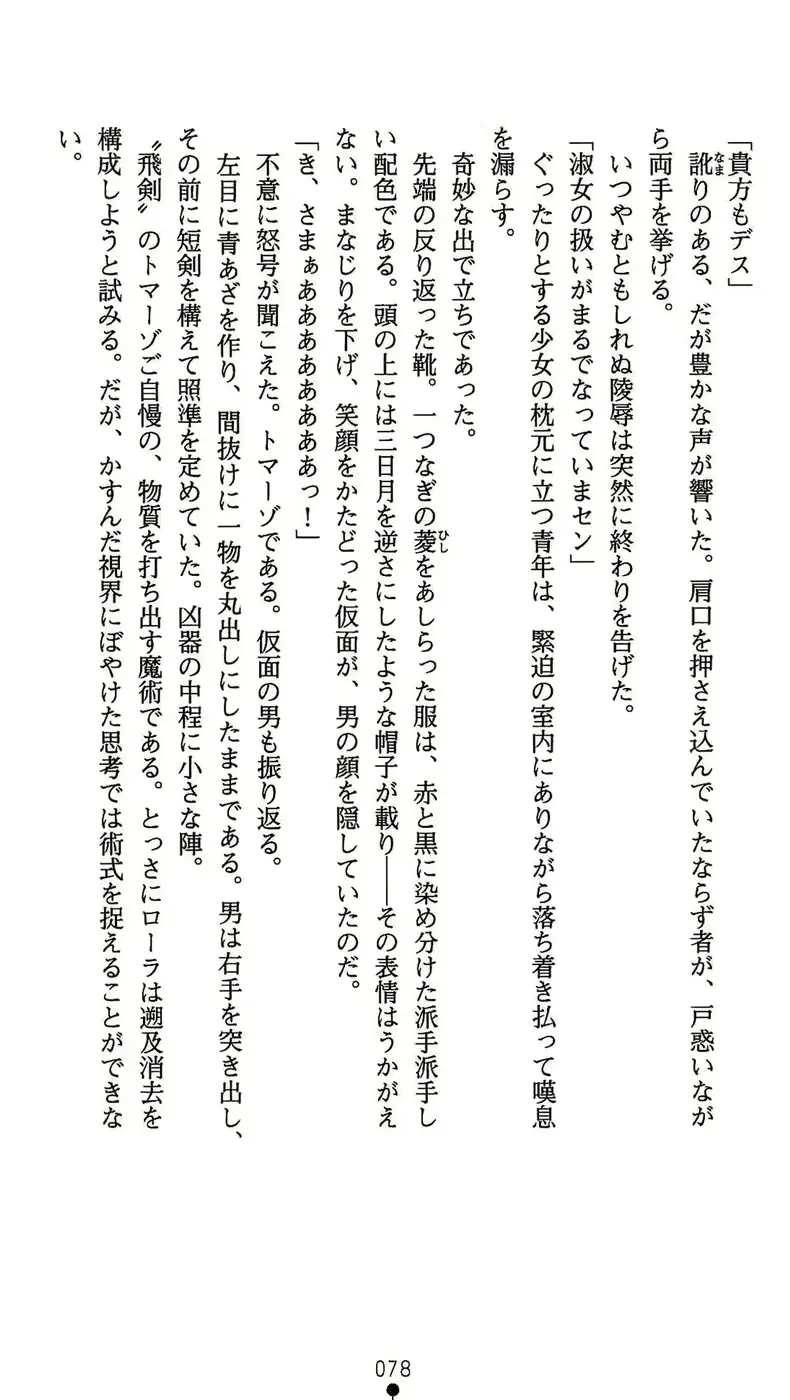 「貴方もデス」
　訛りのある、だが豊かな声が響いた。肩口を押さえ込んでいたならず者が、戸惑いなが
ら両手を挙げる。
　いつやむともしれぬ陵辱は突然に終わりを告げた。
「淑女の扱いがまるでなっていまセン」
　ぐったりとする少女の枕元に立つ青年は、緊迫の室内にありながら落ち着き払って嘆息
を漏らす。
　奇妙な出で立ちであった。
　先端の反り返った靴。一つなぎの菱をあしらった服は、赤と黒に染め分けた派手派手し
い配色である。頭の上には三日月を逆さにしたような帽子が載り――その表情はうかがえ
ない。まなじりを下げ、笑顔をかたどった仮面が、男の顔を隠していたのだ。
「き、さまぁあああああああっ！」
　不意に怒号が聞こえた。トマーゾである。仮面の男も振り返る。
　左目に青あざを作り、間抜けに一物を丸出しにしたままである。男は右手を突き出し、
その前に短剣を構えて照準を定めていた。凶器の中程に小さな陣。
　〝飛剣〟のトマーゾご自慢の、物質を打ち出す魔術である。とっさにローラは遡及消去を
構成しようと試みる。だが、かすんだ視界にぼやけた思考では術式を捉えることができな
い。
078